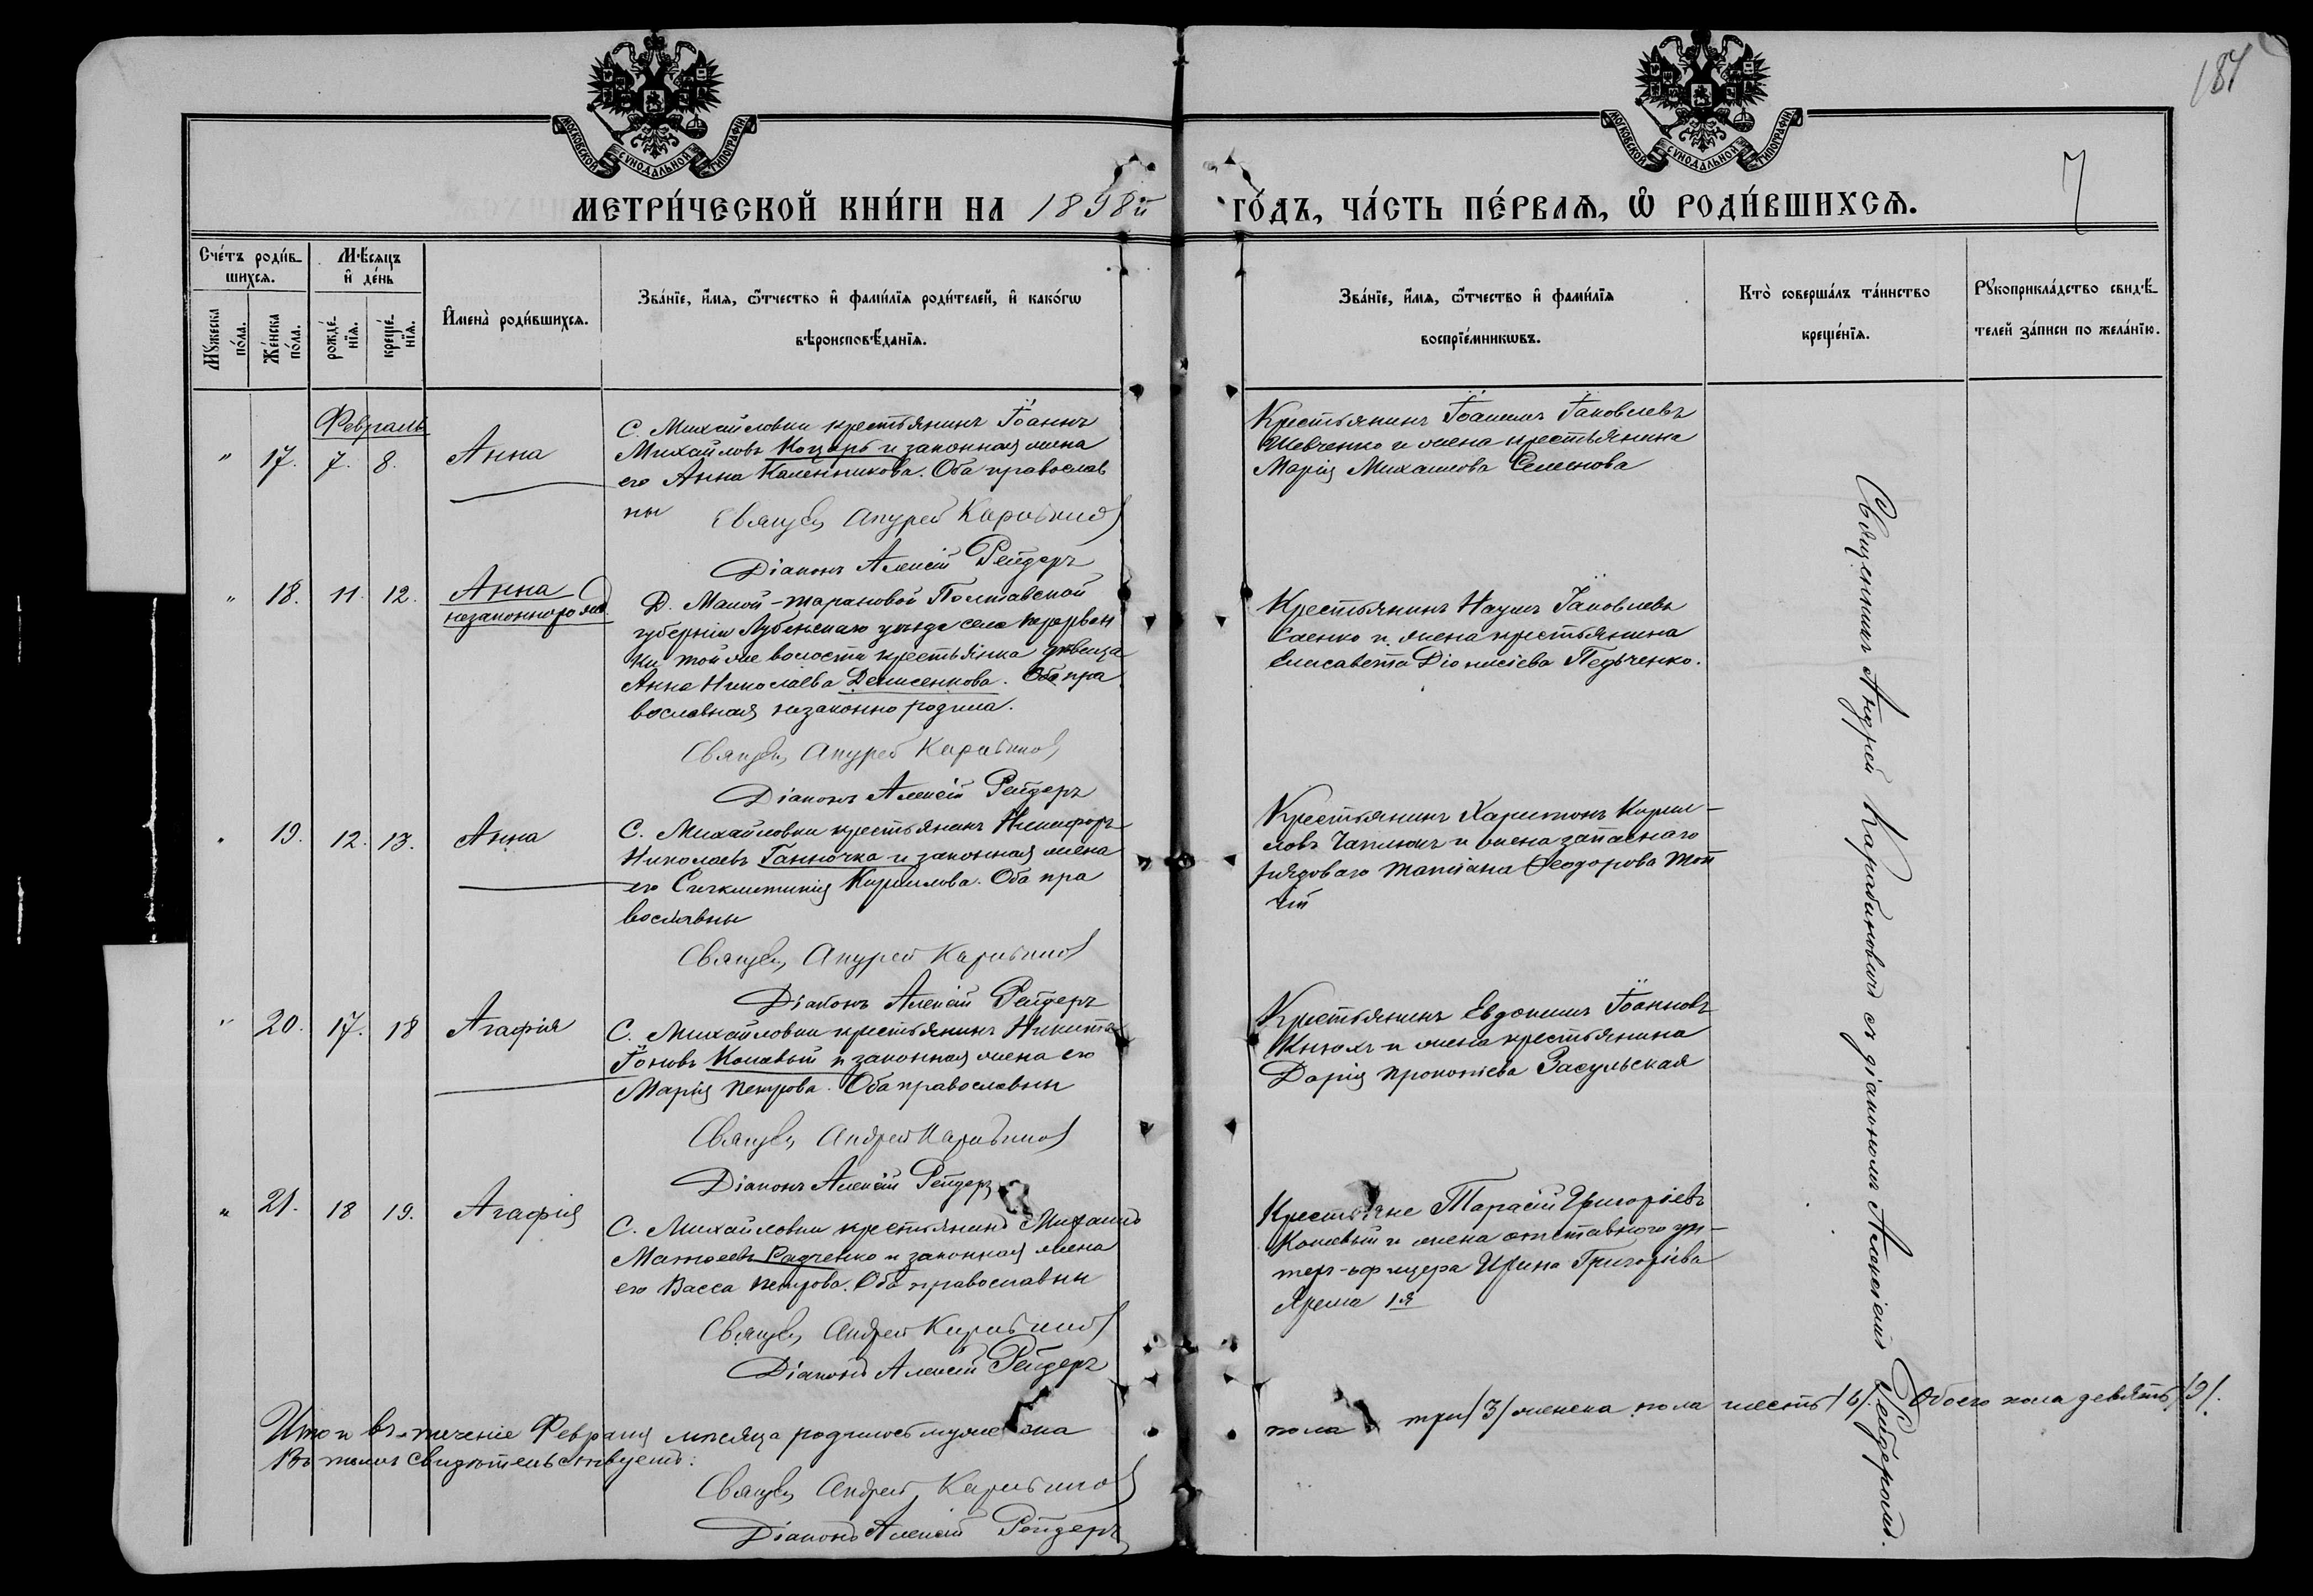 187
7
МОСКОВСКОЙ СѴНОДАЛЬНОЙ ТИПОГРАФІИ
МОСКОВСКОЙ СѴНОДАЛЬНОЙ ТИПОГРАФІИ
МЕТРИ́ЧЕСКОЙ КНИ́ГИ НА 1898й ГО́ДЪ, ЧА́СТЬ ПЕ́РВАѦ, Ѽ РОДИ́ВШИХСѦ.
Сче́тъ роди́в-
шихсѧ.
Мꙋжеска по́ла.
Же́нска по́ла.
Мѣ́сѧцъ
и҆ де́нь
рожде́-
нїѧ.
креще́-
нїѧ.
И҆мена̀ роди́вшихсѧ.
Зва́нїе, и҆́мѧ, ѻ҆́тчество и҆ фами́лїѧ роди́телей, и҆ како́гѡ
вѣроисповѣ́данїѧ.
Зва́нїе, и҆́мѧ, ѻ҆́тчество и҆ фами́лїѧ
воспрїе́мникѡвъ.
Кто̀ соверша́лъ та́инство
креще́нїѧ.
Рꙋкоприкла́дство свидѣ́-
телей за́писи по жела́нїю.
Февраль
" 17. 7. 8. Анна
С. Михайловки крестьянинъ Іоаннъ
Михайловъ Коцарь и законная жена
его Анна Калинникова. Оба православ
ны
Священ Андрей Карабинов
Діаконъ Алексій Рейдеръ
Крестьянинъ Іоаннъ Іаковлевъ
Шевченко и жена крестьянина
Марія Михаилова Семенова
" 18. 11. 12. Анна
незаконнорожд
Д. Малой-Тарановой Полтавской
губерніи Лубенскаго уѣзда села
ки той же волости крестьянка дѣвица
Анна Николаева Денисенкова. Оба пра
вославная незаконно родила.
Священ Андрей Карабинов
Діаконъ Алексій Рейдеръ
Крестьянинъ Наумъ Іаковлевъ
Саенко и жена крестьянина
Елисавета Діонисіева Педьченко.
" 19. 12. 13. Анна
С. Михайловки крестьянинъ Никифоръ
Николаевъ Ганночка и законная жена
его Синклитикія Кириллова. Оба пра
вославны
Священ Андрей Карабинов
Діаконъ Алексій Рейдеръ
Крестьянинъ Харитонъ Кирил-
ловъ и жена запаснаго
рядоваго Татіана Ѳеодорова
" 20. 17. 18 Агафія
С. Михайловки крестьянинъ Никита
Іоновъ Коһавый и законная жена его
Марія Петрова. Оба православны
Священ Андрей Карабинов
Діаконъ Алексій Рейдеръ
Крестьянинъ Евдокимъ Іоанновъ
и жена крестьянина
Дарія Прокопіева Засульская
" 21. 18 19. Агафія
С. Михайловки крестьянинъ Михаилъ
Матѳеевъ Радченко и законная жена
его Васса Петрова. Оба православны
Священ Андрей Карабинов
Діаконъ Алексій Рейдеръ
Крестьяне Тарасій Григоріевъ
и жена отставного ун-
теръ-офицера Ирина Григоріева
Ярема 1я
Священникъ Андрей Карабиновичъ съ діакономъ Алексіемъ Рейдеромъ.
Итого въ теченіе Февраля мѣсяца родилось мужеска пола три /3/ женска пола шесть /6/. Обоего пола девять /9/.
Въ томъ свидѣтельствуетъ:
Священ Андрей Карабинов
Діаконъ Алексій Рейдеръ